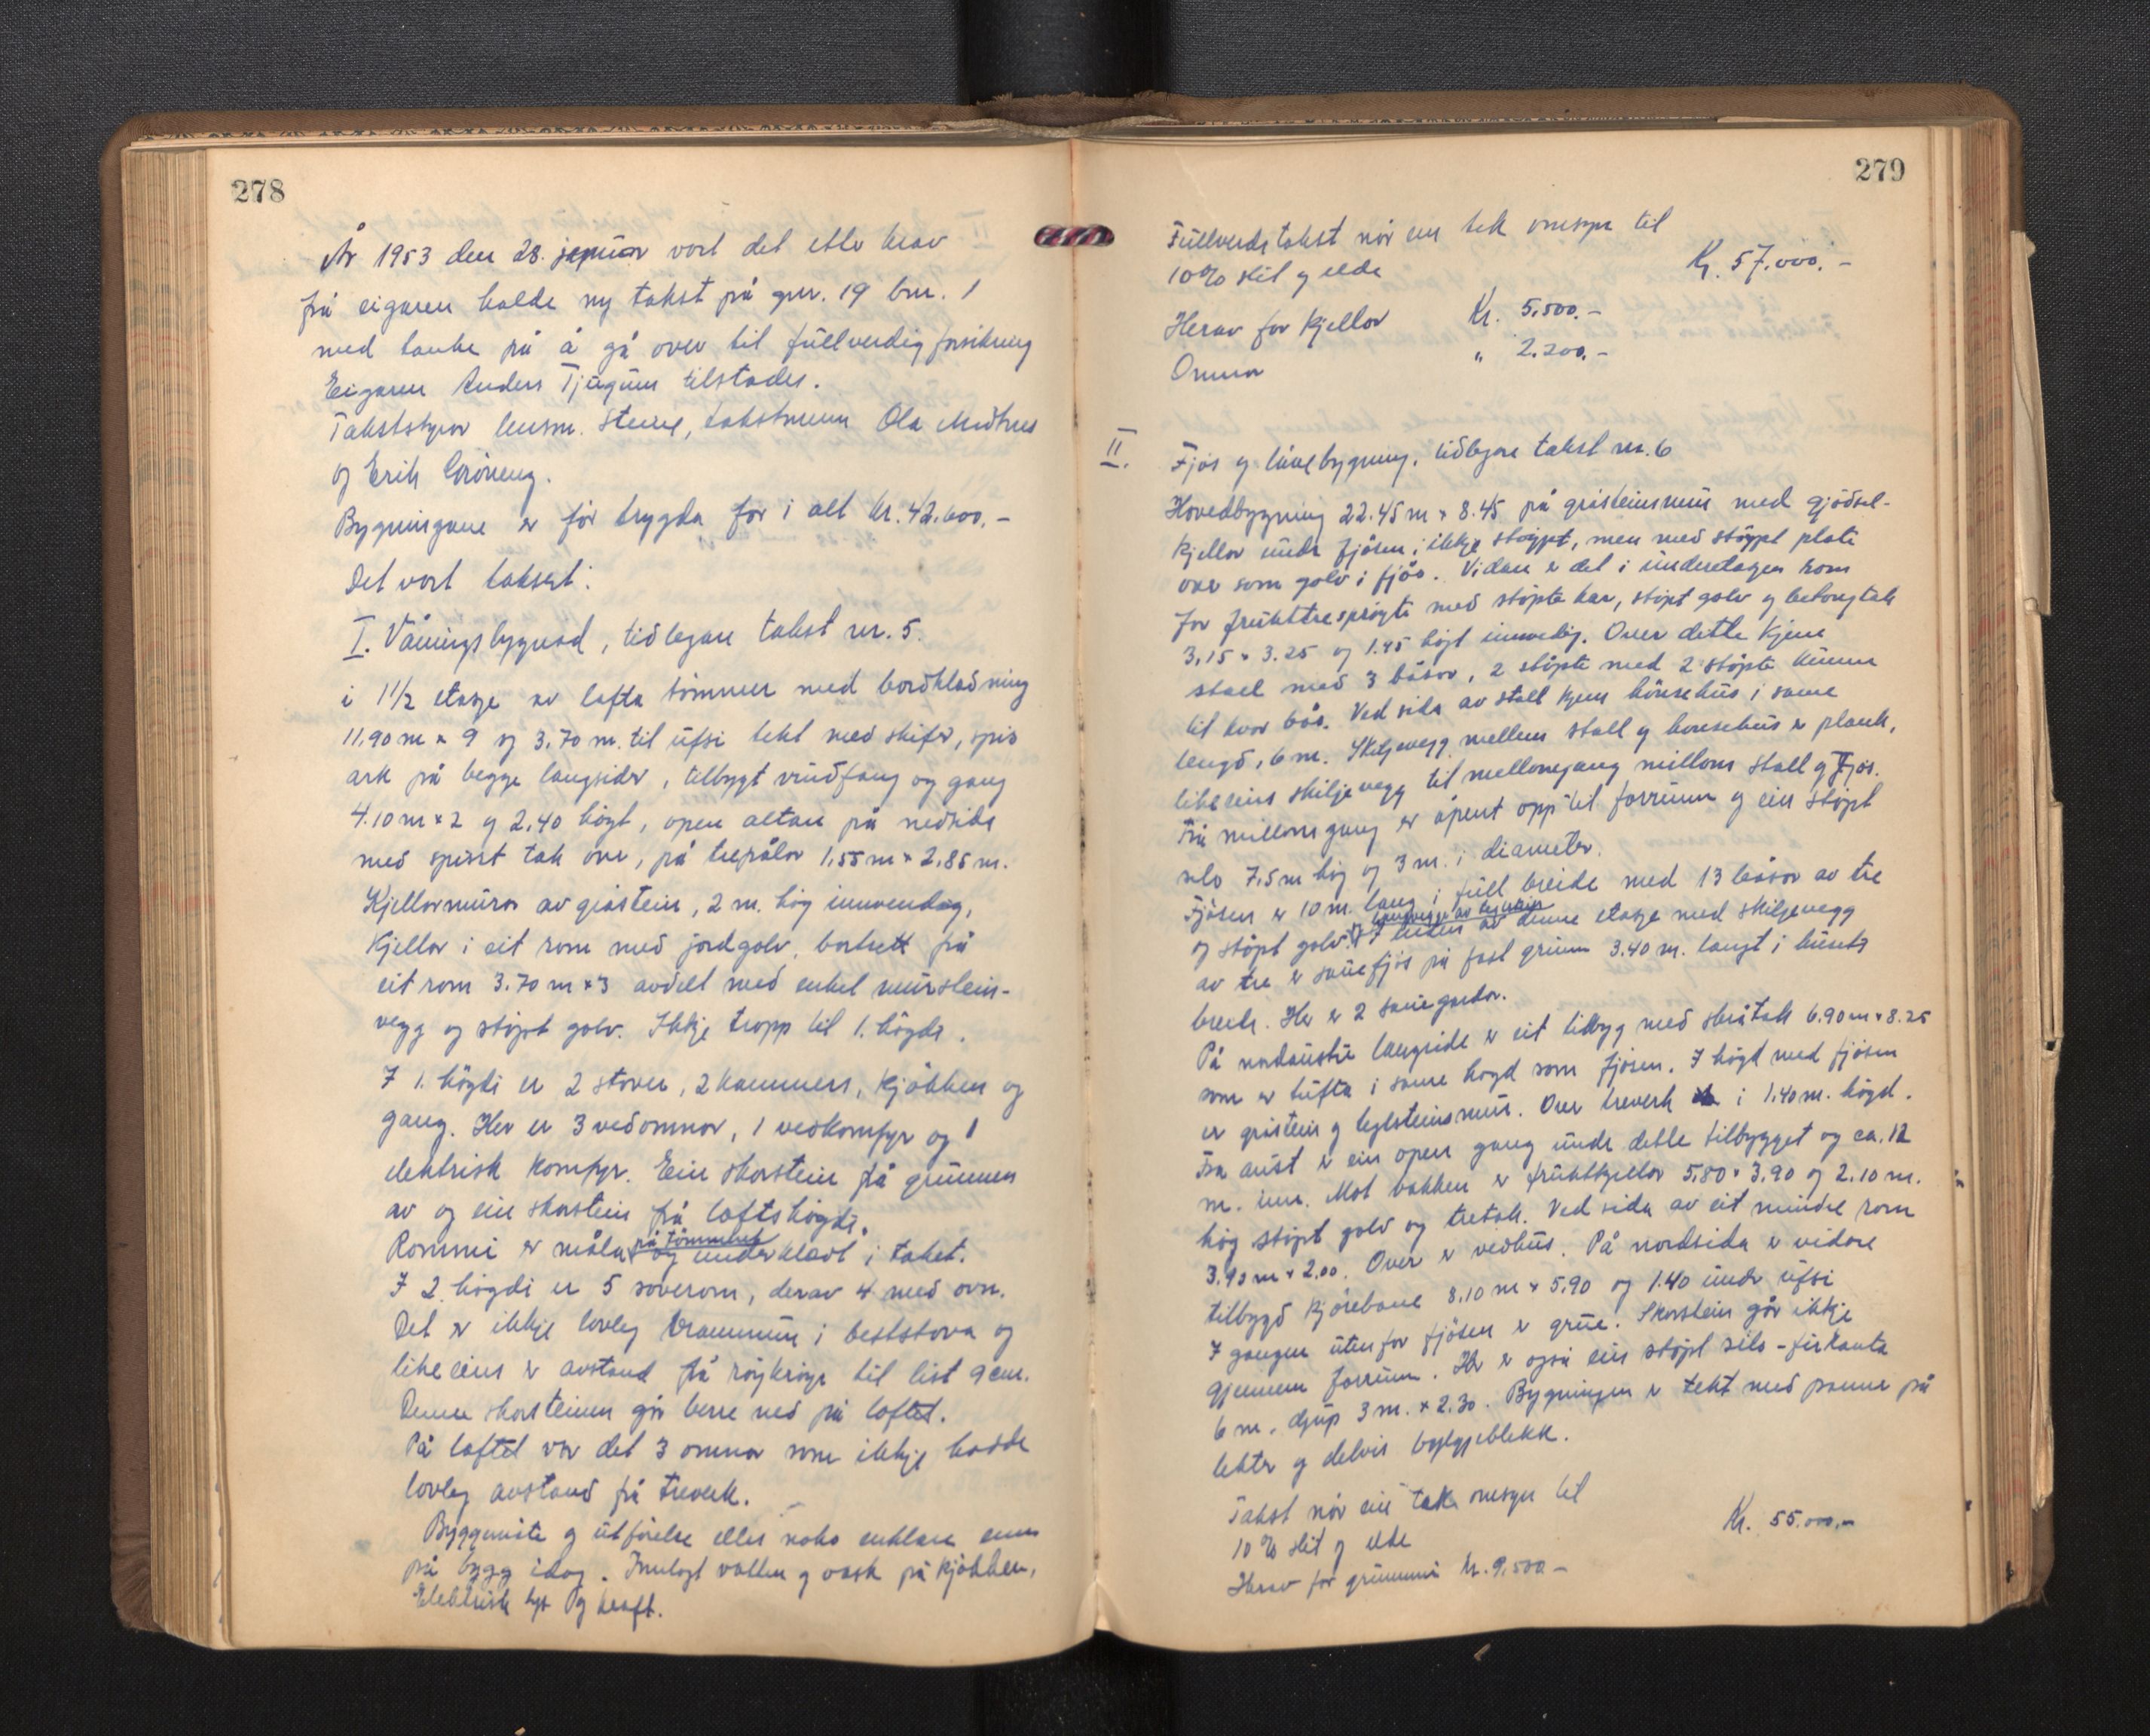 278
År 1953 den 28. januar vart det etter krav
frå eigaren halde ny takst på gnr. 19 bnr. 1
med tanke på å gå over til fullverdig forsikring
Eigaren Anders Tjugum tilstades.
Takststyrar lensm. Steine, takstmenn Ola Midtnes
og Erik Gröneng.
Bygningane er før trygda for i alt kr. 42.600.-
Det vart taksert:
I. Våningsbygnad, tidlegare takst nr. 5.
i 1 1/2 etasje av lafta tömmer med bordkledning
11.90 m x 9 og 3.70 m. til ufsi tekt med skifer, spis
ark på begge langsider, tilbygt vindfang og gang
4.10 m x 2 og 2.40 högt, open altan på nedsida
med spisst tak over, på trepålar 1.55 m x 2.85 m.
Kjellarmurar av gråstein, 2 m. høg innvendig,
Kjellar i eit rom med jordgolv, bortsett frå
eit rom 3.70 m x 3 avdelt med enkel murstein-
vegg og støpt golv. Ikkje tropp til 1. högda.
I 1. högdi er 2 stover, 2 kammers, kjökken og
gang. Her er 3 vedomnar, 1 vedkomfyr og 1
elektrisk komfyr. Ein skorstein frå grunnen
av og ein skorstein frå loftshögdi.
Rommi er måla på tömmeret og underkledt i taket.
I 2. högdi er 5 soverom, derav 4 med ovn.
Det er ikkje lovleg brannmur i beststova og
likeeins er avstand frå röykröyr til list 9 cm.
Denne skorsteinen går berre ned på loftet.
På loftet var det 3 omnar som ikkje hadde
lovleg avstand frå treverk.
Byggemåte og utförelse elles noko enklare enn
på bygg idag. Innlagt vatten og vask på kjökken,
Elektrisk lys og kraft.
279
Fullverdstakst når ein tek omsyn til
10% slit og elde Kr. 57.000.-
Herav for kjellar Kr. 5.500.-
Omnar " 2.200.-
II. Fjös og lövebygning, tidlegare takst nr. 6
Hovedbygning 22.45 m x 8.45 på gråsteinsmur med gjödsel-
kjellar under fjösen, ikkje stöypt, men med stöypt plate
over som golv i fjös. Vidare er det i underetagen rom
for frukttresprøyte med støpte kar, støpt golv og betongtak
3.15 x 3.25 og 1.95 högt innvedig. Over dette kjem
stall med 3 båsar, 2 støpte med 2 støpte kummer
til kvar bås. Ved sida av stall kjem hönsehus i same
lengd, 6 m. Skiljevegg mellom stall og hønsehus er plank,
likeeins skiljevegg til mellomgang millom stall og Fjös.
Frå millomgang er åpent opp til forrumm og ein støpt
silo 7,5 m høg og 3 m. i diameter.
Fjösen er 10 m. lang i full breide med 13 båsar av tre
og støpt golv. I enden av denne etasje med skiljevegg
av tre er sauefjös på fast grunn 3.40 m. langt i husets
breide. Her er 2 sauegardar.
På nordaustre langside er eit tilbygg med skråtak 6.90 m x 8.25
som er tufta i same högd som fjösen. I högd med fjösen
er gråstein og teglsteinsmur. Over treverk i 1.40 m. högd.
Frå aust er ein open gang under dette tilbygget og ca. 12
m. inn. Mot bakken er fruktkjellar 5.80 x 3.90 og 2.10 m.
høg støpt golv og tretak. Ved sida av eit mindre rom
3.90 m x 2.00. Over er vedhus. På nordsida er vidare
tilbygd kjörebane 8.10 m x 5.90 og 1.40 under ufsi
I gangen utenfor fjösen er grue. Skorstein går ikkje
gjennom forrumm. Her er også ein støpt silo - firkanta
6 m. djup 3 m. x 2.30. Bygningen er tekt med panner på
lekter og delvis bylgjeblekk.
Takst når ein tek omsyn til
10% slit og elde Kr. 55.000.-
Herav for grunnmur kr. 9.500.-